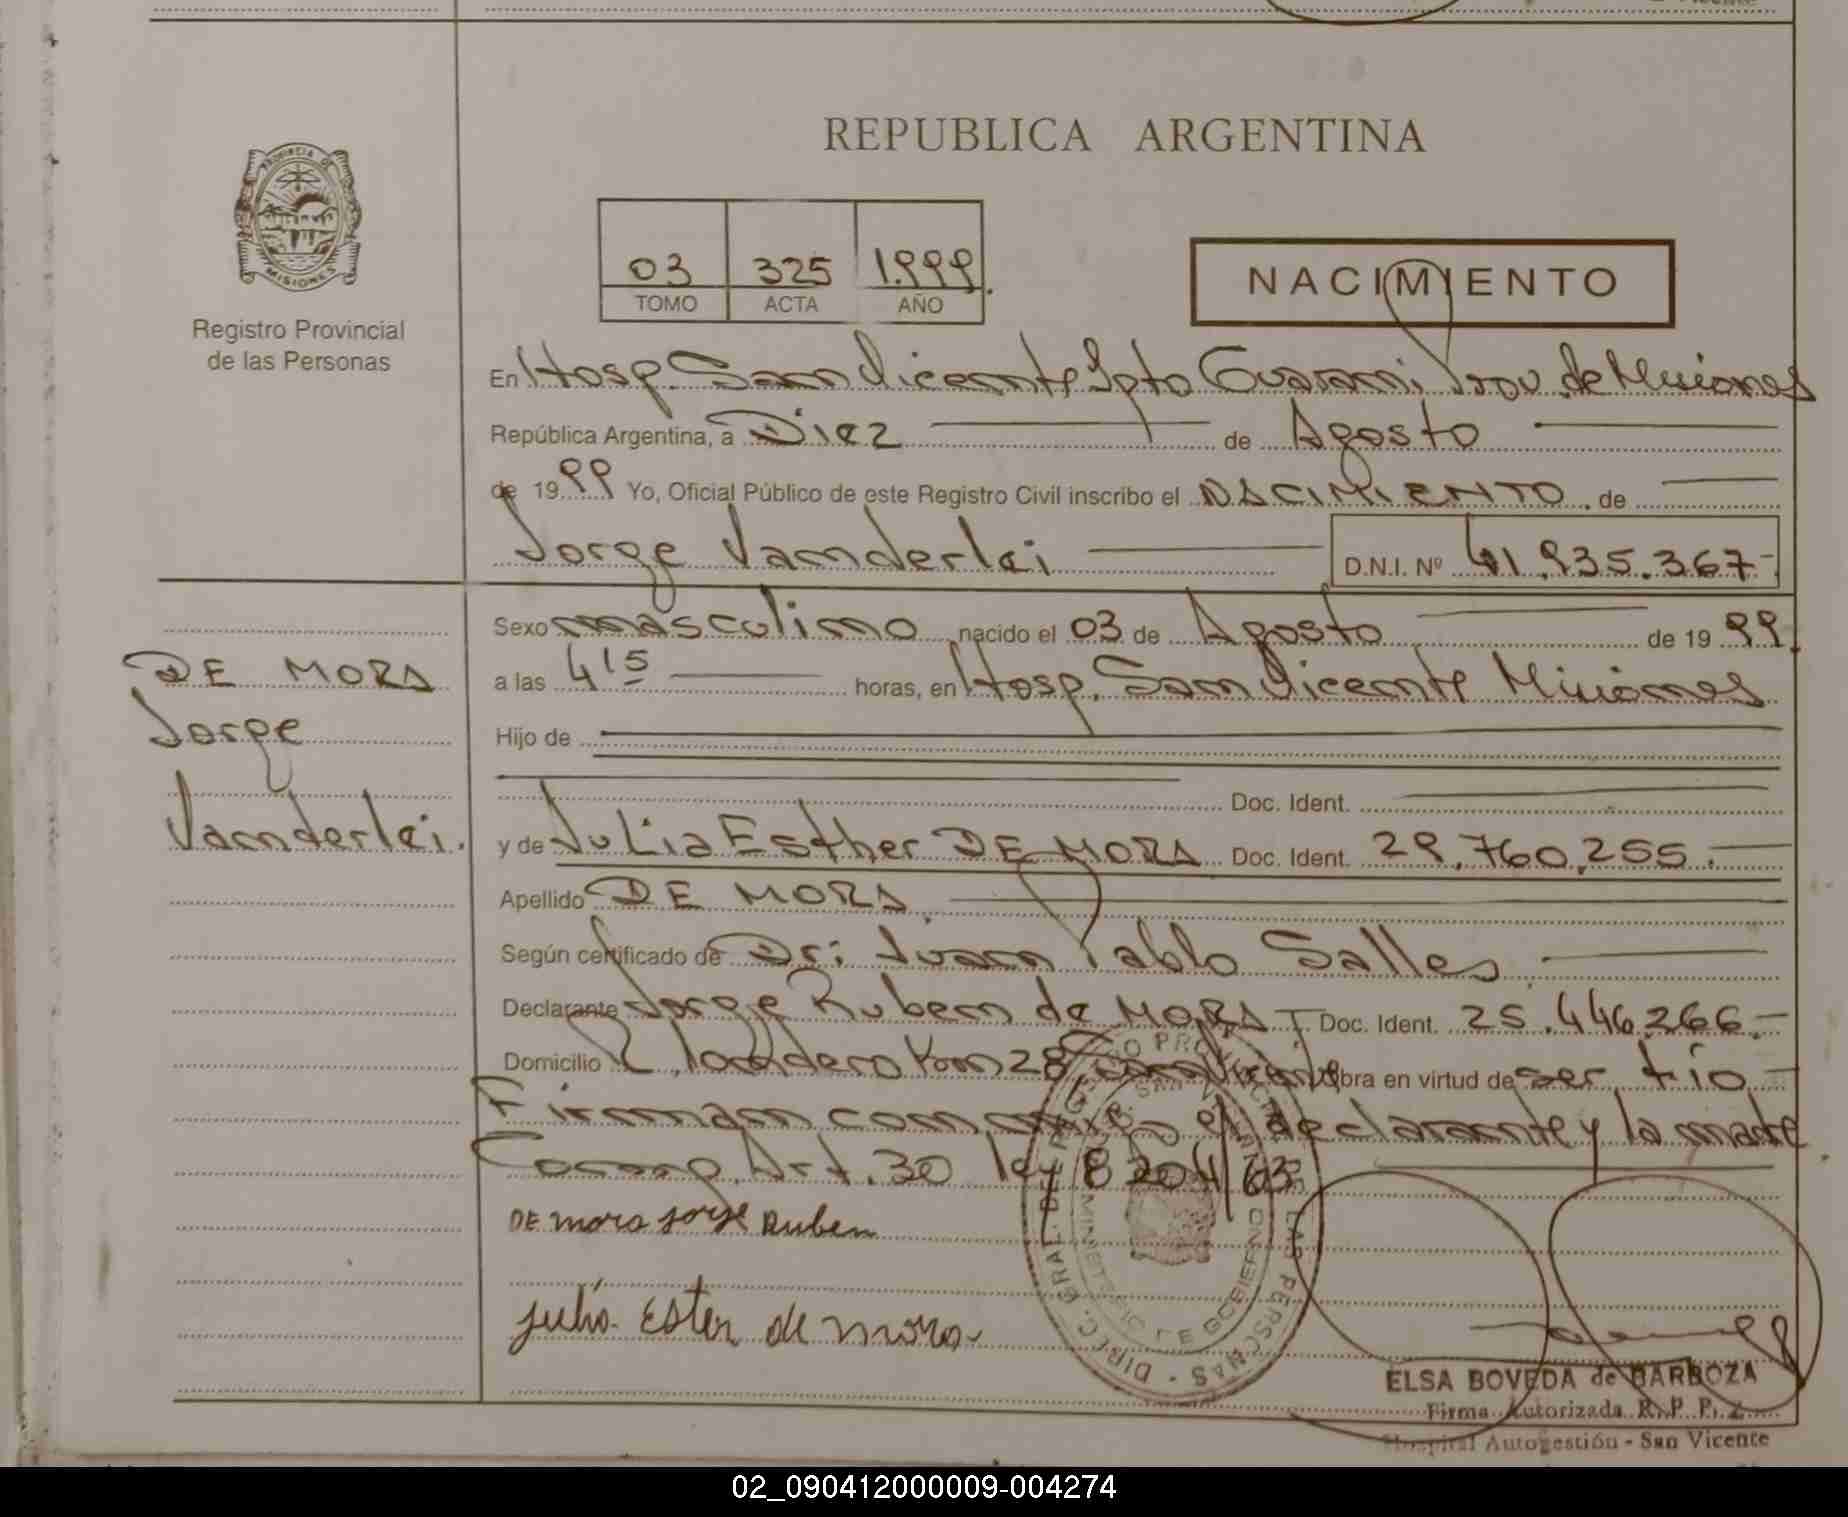 REPUBLICA ARGENTINA
PROVINCIA DE
MISIONES
Registro Provincial
de las Personas
03 325 1.999.
TOMO ACTA AÑO
NACIMIENTO
En Hosp. San Vicente Dpto Guarani, Prov. de Misiones
República Argentina, a Diez de Agosto
de 1999 Yo, Oficial Público de este Registro Civil inscribo el NACIMIENTO. de
Jorge Vanderlei D.N.I. Nº 41.935.367-
DE MORA
Jorge
Vanderlei.
Sexo masculino nacido el 03 de Agosto de 1999.
a las 4 15 horas, en Hosp. San Vicente Misiones
Hijo de
Doc. Ident.
y de Julia Esther DE MORA Doc. Ident. 29.760.255.
Apellido DE MORA.
Según certificado de Dr: Juan Pablo Salles
Declarante Jorge Ruben de MORA Doc. Ident. 25.446.266.-
Domicilio Km 28 San Vicente obra en virtud de ser tío
Firman conmigo el declarante y la madre.
Art. 30 ley 8204/63
DE mora Jorge Ruben
Julia Ester de mora
ELSA BOVEDA de BARBOZA
Firma Autorizada R. P. P. Z.
Hospital Autogestión - San Vicente
02_090412000009-004274